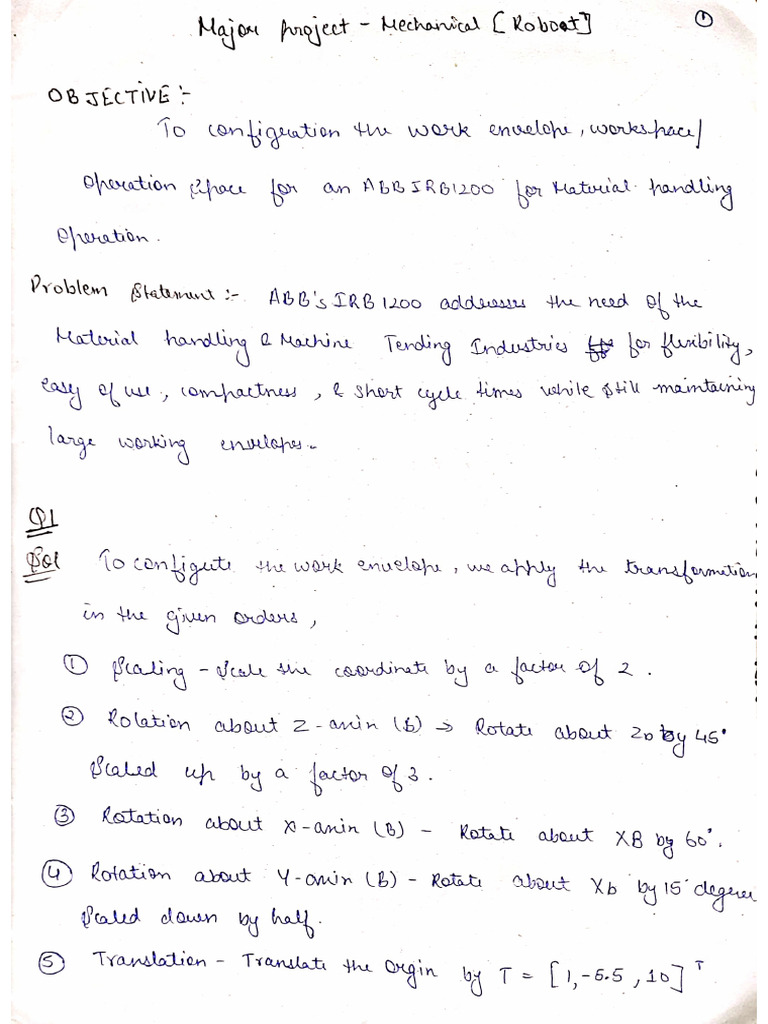 Major project - Mechanical [Roboat]
1
OBJECTIVE :-
To configration the work envelope, workspace/
operation space for an ABB IRB1200 for Material handling
operation.
Problem Statement :- ABB's IRB 1200 addresses the need of the
Material handling & Machine Tending Industries for flexibility,
easy of use, compactness, & short cycle times while still maintaining
large working envelopes.
Q1
Sol To configute the work envelope, we apply the transformation
in the given orders,
① Scaling - Scale the coordinate by a factor of 2.
② Rotation about Z-axin (b) → Rotate about Zb by 45°
Scaled up by a factor of 3.
③ Rotation about X-axin (B) - Rotate about XB by 60°.
④ Rotation about Y-axin (B) - Rotate about Xb by 15° degeree
Scaled down by half.
⑤ Translation - Translate the Orgin by T = [1, -5.5, 10]ᵀ